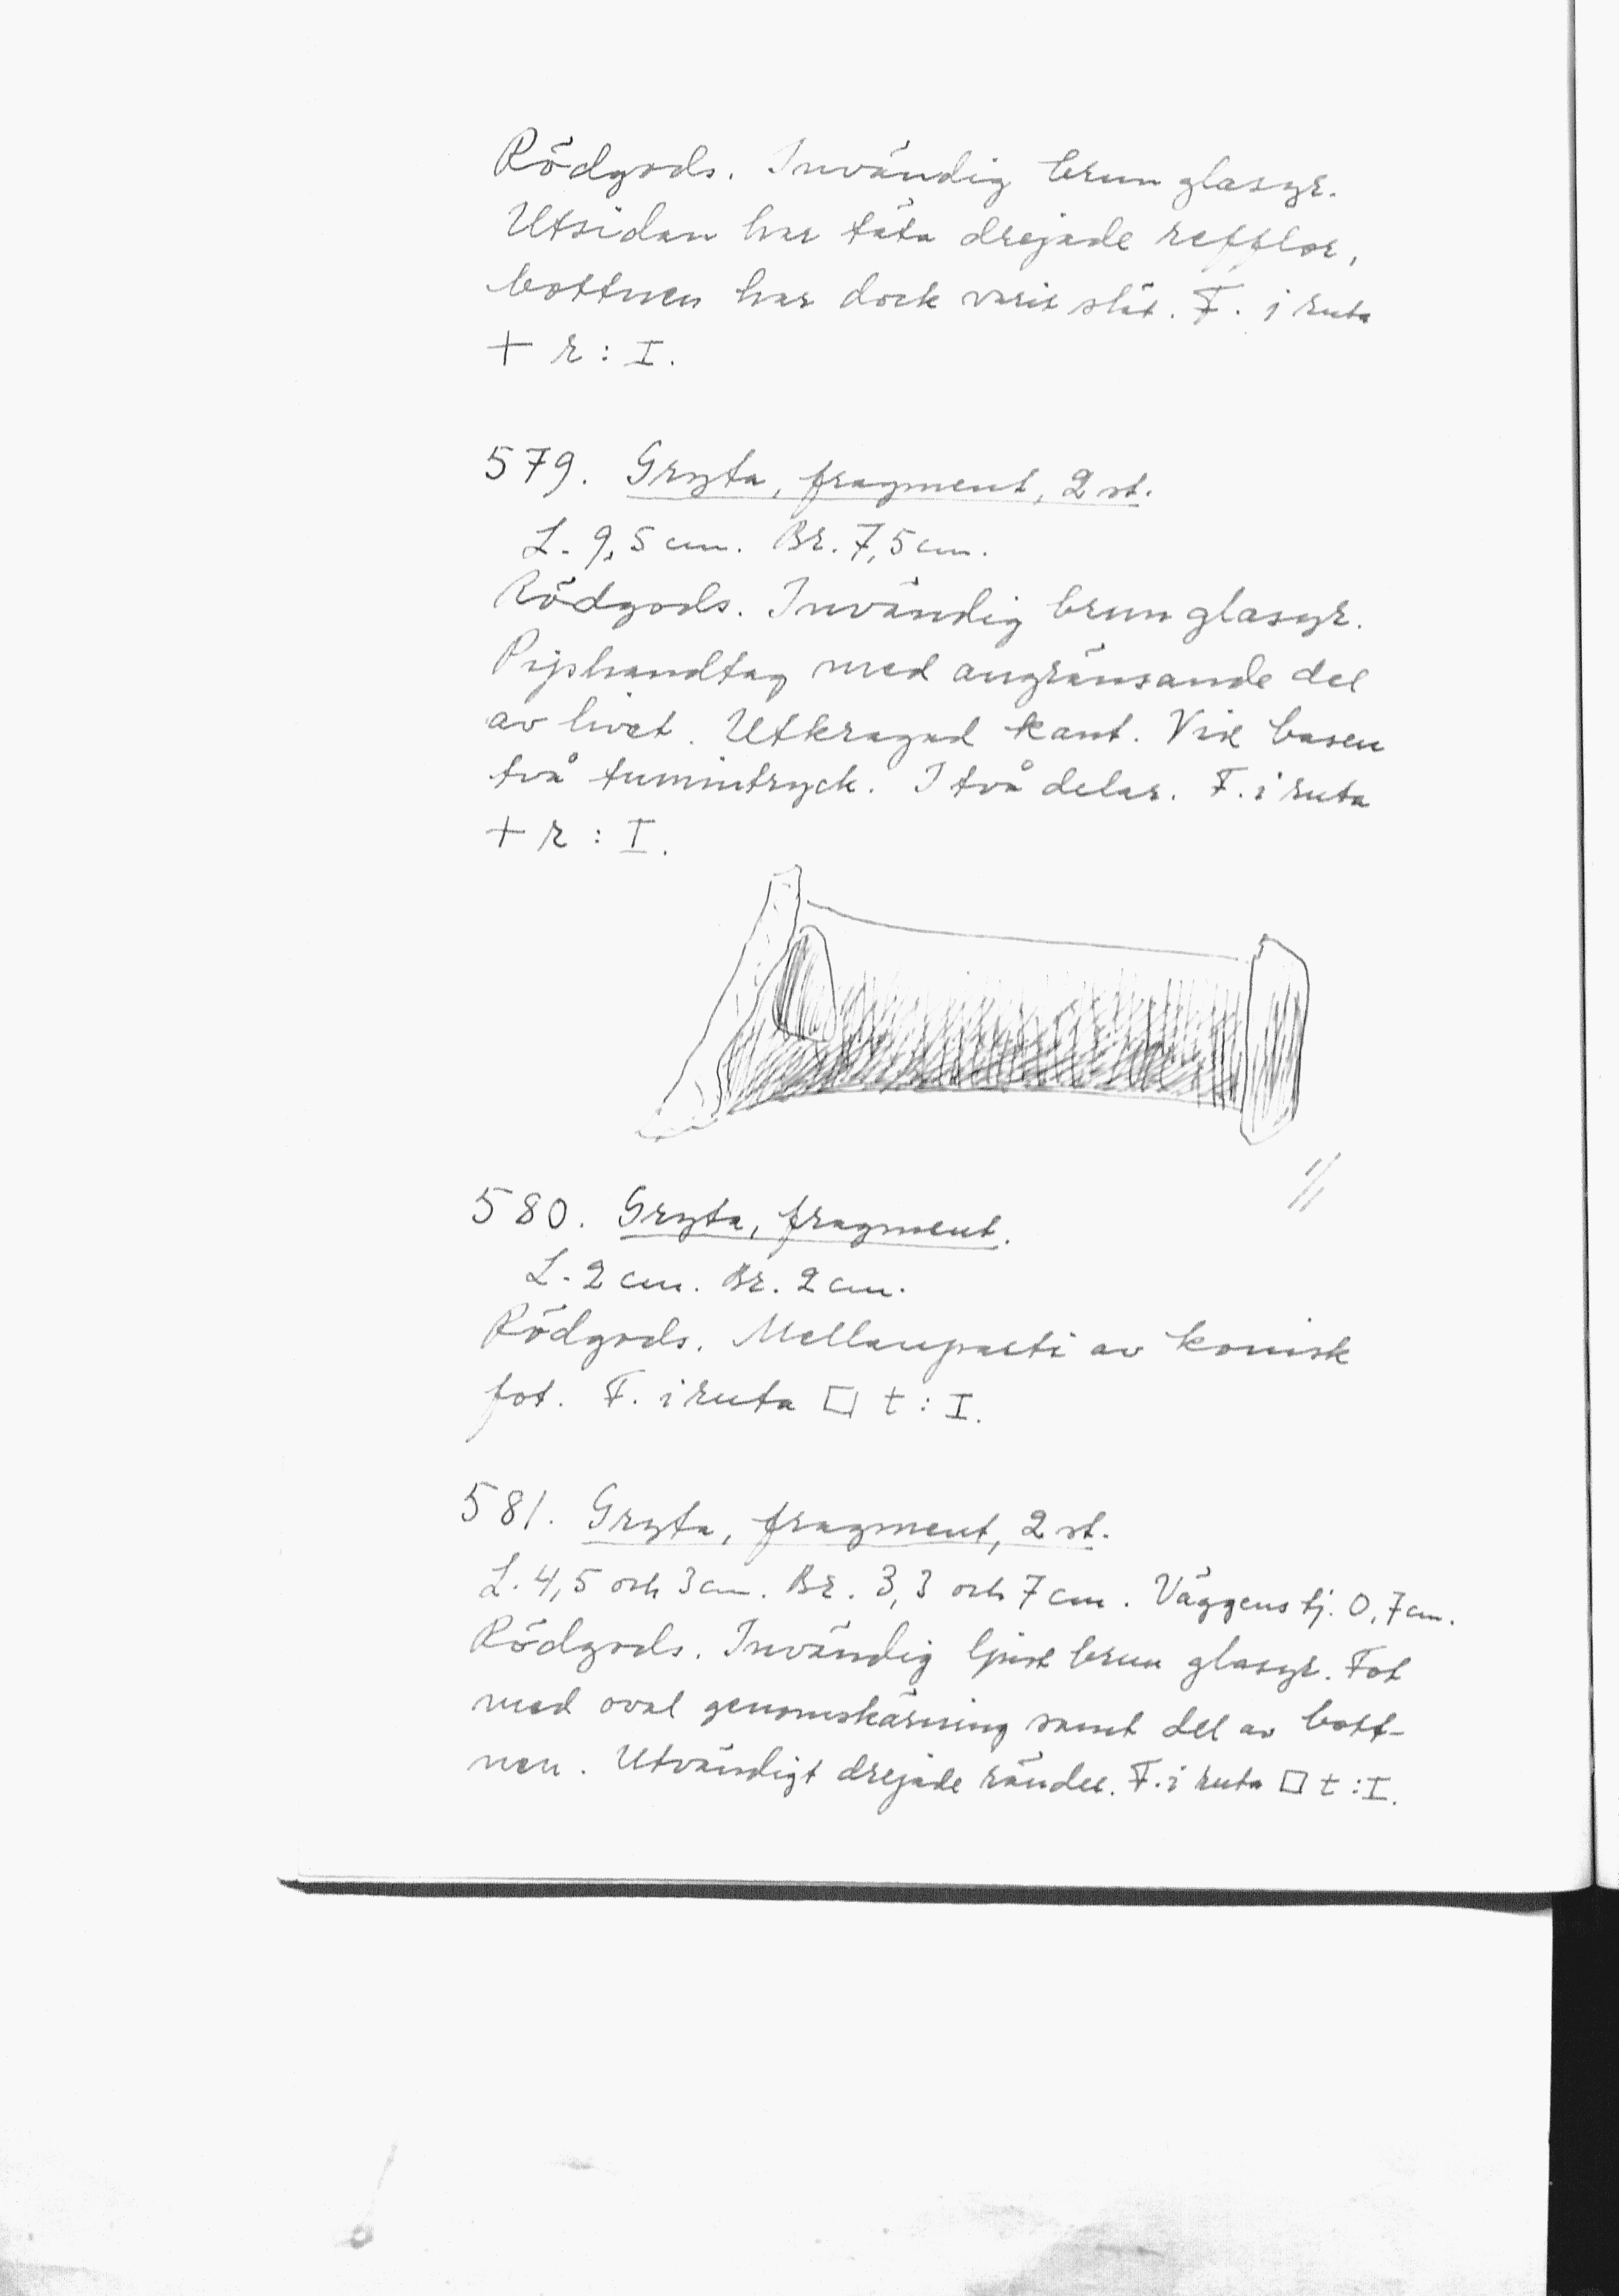 Rödgods. Invändig brun glasyr.
Utsidan har täta drejade refflor,
bottnen har dock varit slät. F. i ruta
+ r : I.
579. Gryta, fragment, 2 st.
L. 9,5 cm. Br. 7,5 cm.
Rödgods. Invändig brun glasyr.
Piphandtag med angränsande del
av livet. Utkragad kant. Vid basen
två tumintryck. I två delar. F. i ruta
+ r : I.
1/1
580. Gryta, fragment.
L. 2 cm. Br. 2 cm.
Rödgods. Mellanparti av konisk
fot. F. i ruta □ t : I.
581. Gryta, fragment, 2 st.
L. 4,5 och 3 cm. Br. 3,3 och 7 cm. Väggens tj. 0,7 cm.
Rödgods. Invändig ljust brun glasyr. Fot
med oval genomskärning samt del av bott-
nen. Utvändigt drejade ränder. F. i ruta □ t : I.